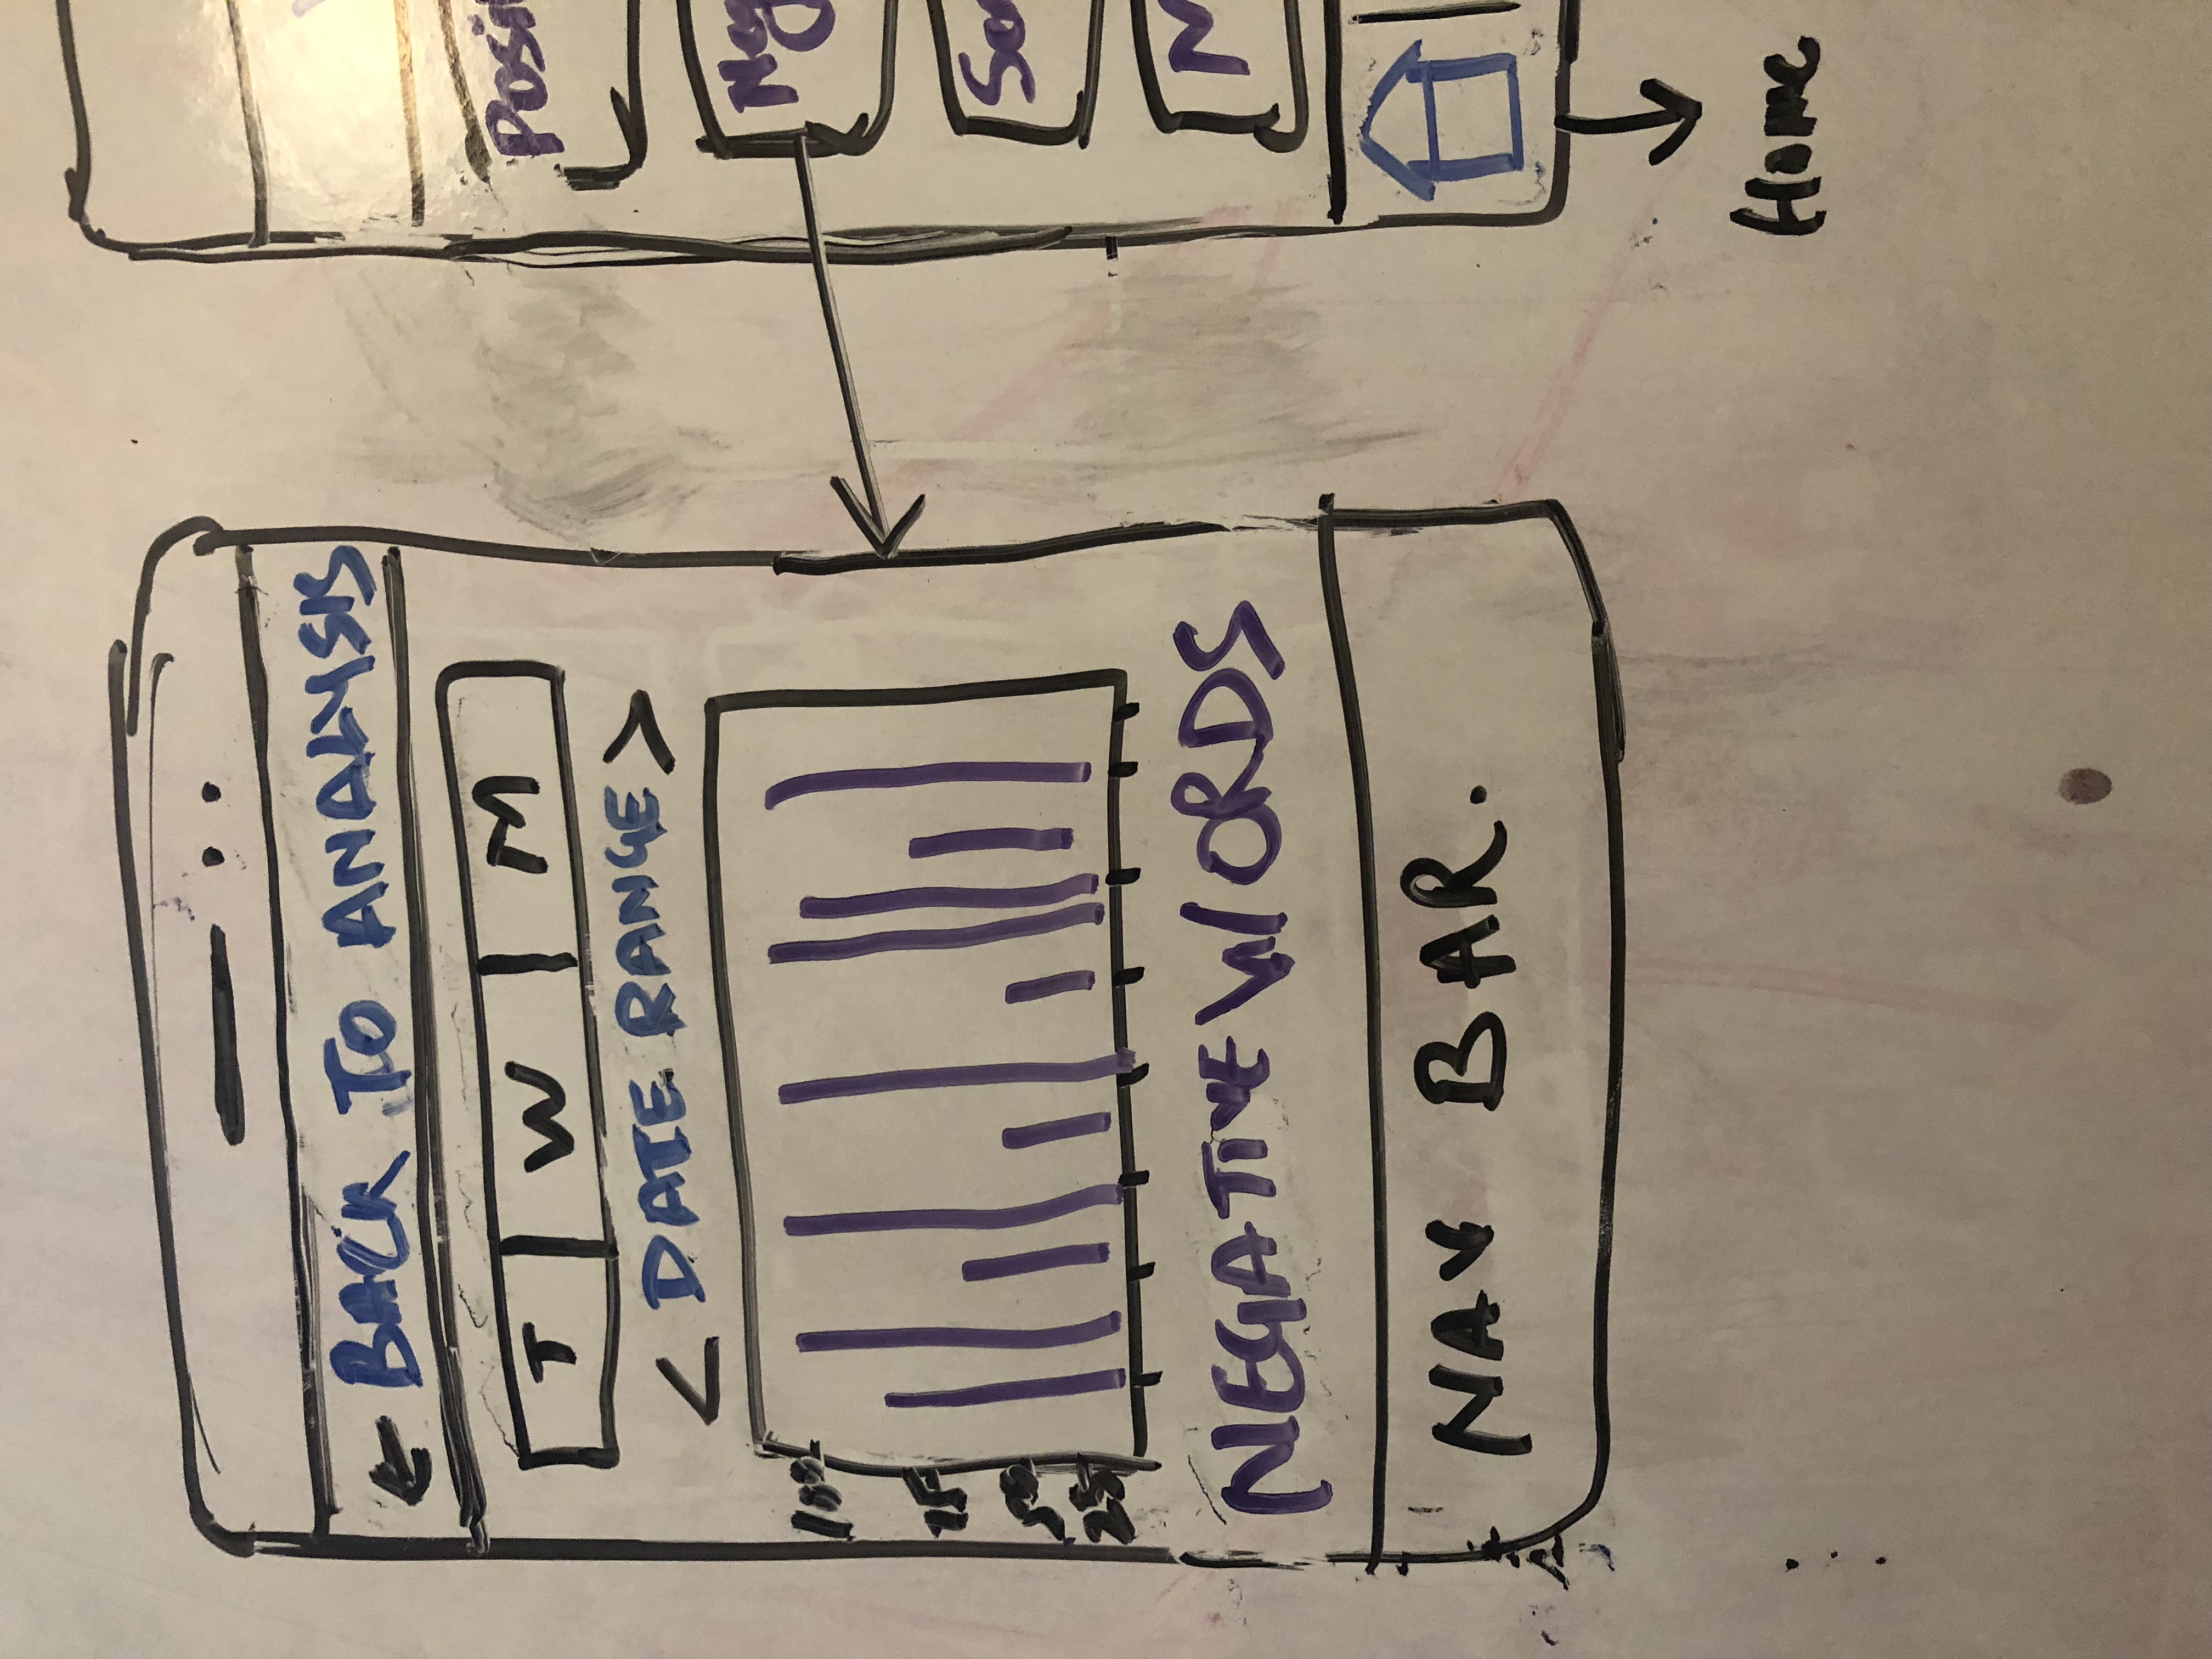 ← BACK TO ANALYSIS
T W M
< DATE RANGE >
100
75
50
25
NEGATIVE WORDS
NAV BAR.
Posi
Neg
So
M
Home